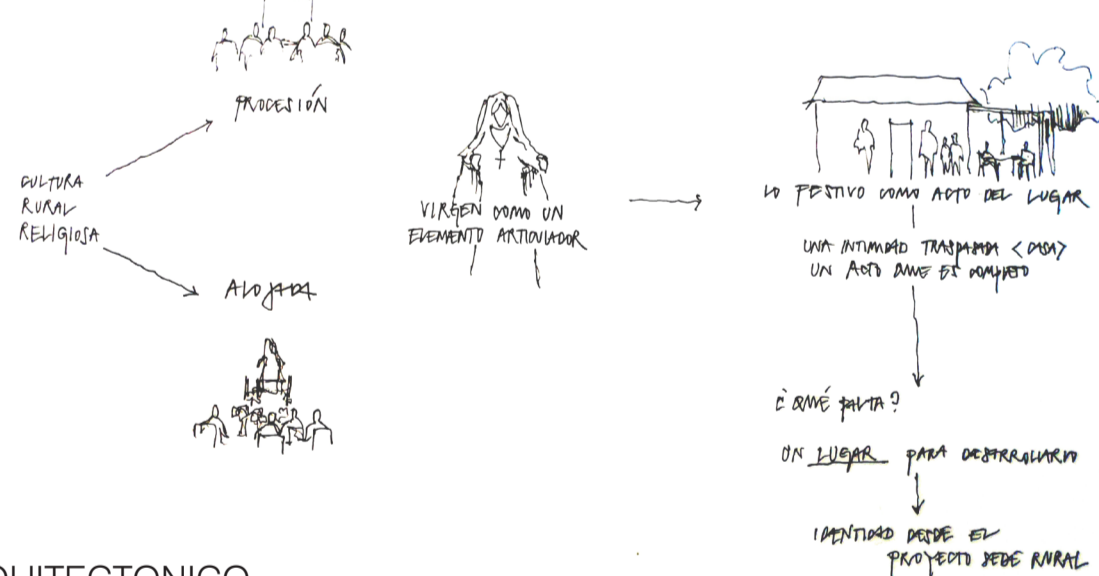 PROCESIÓN
CULTURA
RURAL
RELIGIOSA
ALOJADA
VIRGEN COMO UN
ELEMENTO ARTICULADOR
LO FESTIVO COMO ACTO DEL LUGAR
UNA INTIMIDAD TRASPASADA <CASA>
UN ACTO QUE ES COMPLETO
¿QUÉ FALTA?
UN LUGAR PARA DESARROLLARLO
IDENTIDAD DESDE EL
PROYECTO SEDE RURAL
QUITECTONICO